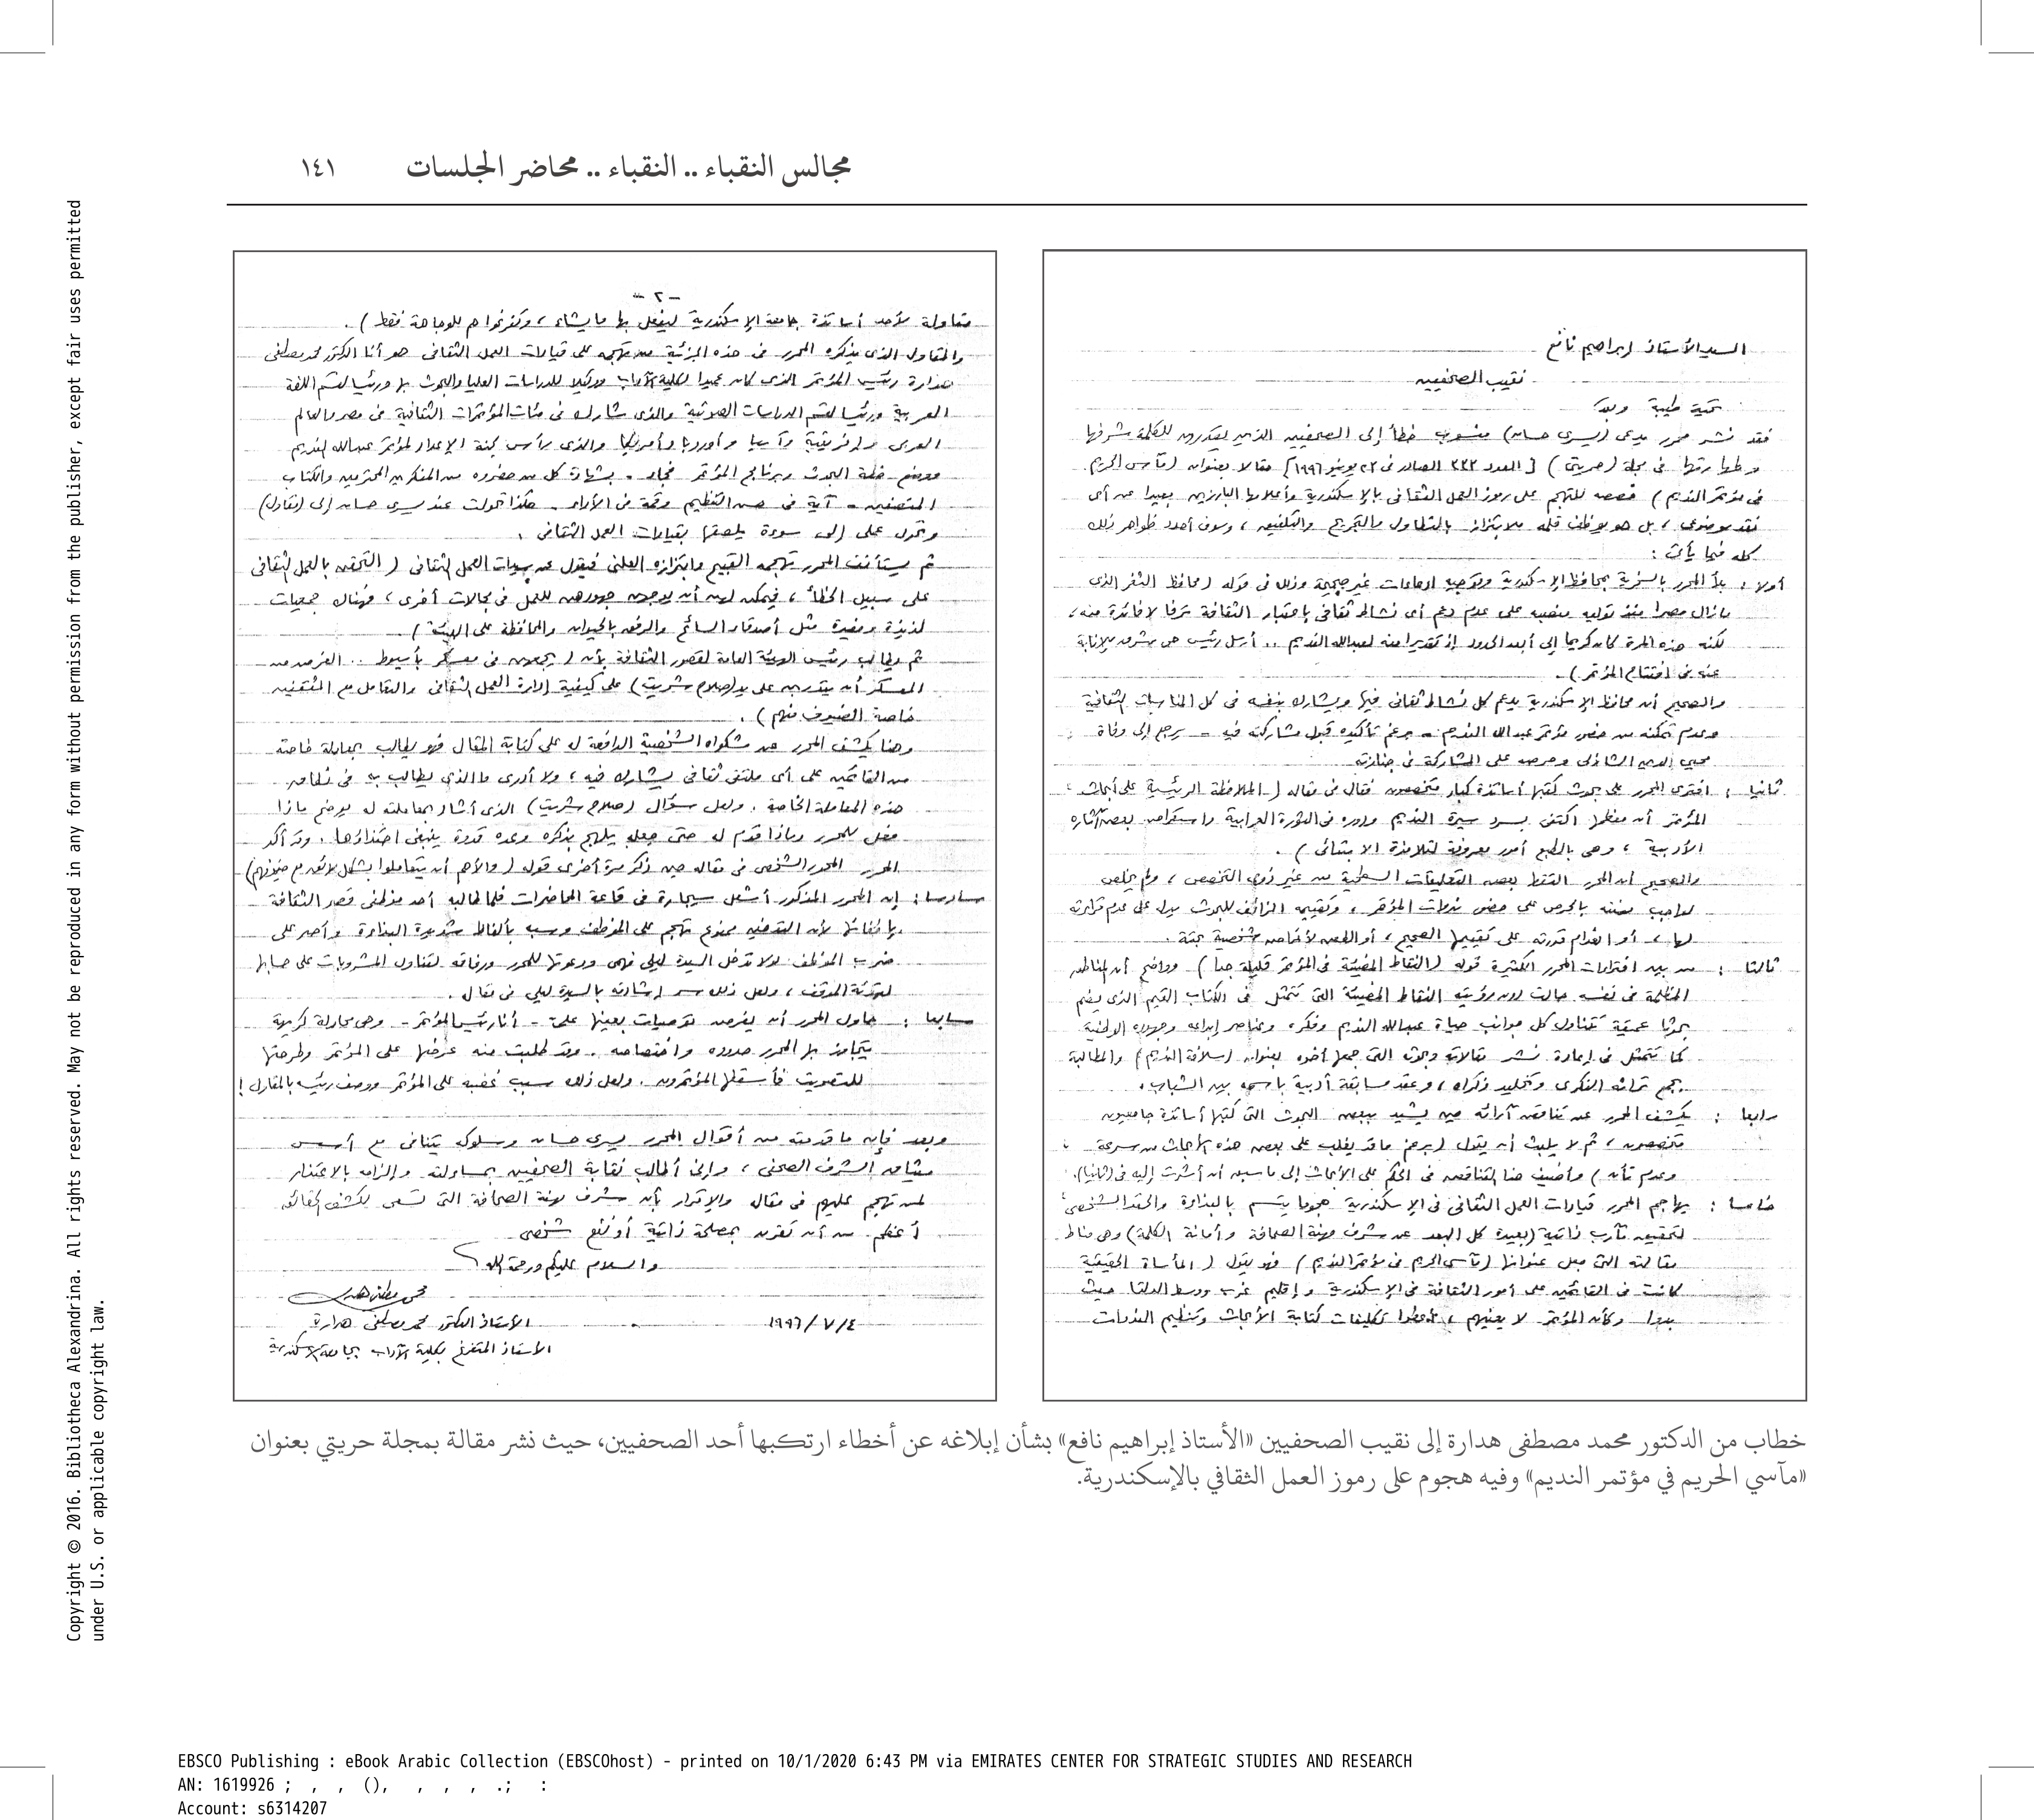 مجالس النقباء .. النقباء .. محاضر الجلسات ١٤١
السيد الأستاذ إبراهيم نافع
نقيب الصحفيين
تحية طيبة وبعد
فقد نشر محرر يدعى (يسرى حسان) منسوب خطأ إلى الصحفيين الذين يقدرون للكلمة شرفها
وطهارتها فى مجلة (حريتى) [العدد ٣٣٣ الصادر فى ٢٣ يونيو ١٩٩٦] مقالا بعنوان (مآسى الحريم
فى مؤتمر النديم) خصصه للتهجم على رموز العمل الثقافى بالإسكندرية وأعلامها البارزين بعيدا عن أى
نقد موضوعى، بل هو يوظف قلمه للابتزاز بالتطاول والتجريح والتلفيق، وسوف أحدد ظواهر ذلك
كله فيما يأتى :
أولا : بدأ المحرر بالسخرية بمحافظ الإسكندرية وتوجيه ادعاءات غير صحيحة وذلك فى قوله (محافظ الثغر الذى
مازال مصرا منذ توليه منصبه على عدم دعم أى نشاط ثقافى باعتبار الثقافة ترفا لا فائدة منه،
لكنه هذه المرة كان كريما إلى أبعد الحدود إذ تقديرا منه لعبدالله النديم .. أرسل رئيس حى شرق للإنابة
عنه فى افتتاح المؤتمر).
والصحيح أن محافظ الإسكندرية يدعم كل نشاط ثقافى فيها ويشارك بنفسه فى كل المناسبات الثقافية
وعدم تمكنه من حضور مؤتمر عبدالله النديم - برغم تأكيده قبول مشاركته فيه - يرجع إلى وفاة
محيى الدين الشاذلى وحرصه على المشاركة فى جنازته
ثانيا : افترى المحرر على بحوث كتبها أساتذة كبار متخصصون فقال فى مقاله (الملاحظة الرئيسية على أبحاث
المؤتمر أن معظمها اكتفى بسرد سيرة النديم ودوره فى الثورة العرابية واستعراض بعض آثاره
الأدبية ، وهى بالطبع أمور معروفة لتلامذة الابتدائى).
والصحيح أن المحرر التقط بعض التعليقات السطحية من غير ذوى التخصص ، ولم يخلص
لواجب مهنته بالحرص على حضور ندوات المؤتمر ، وتقييمه الزائف للبحوث يدل على عدم قراءته
لها ، أو انعدام قدرته على تقييمها الصحيح ، أو لأغراض شخصية بحتة.
ثالثا : من بين افتراءات المحرر الكثيرة قوله (النقاط المضيئة فى المؤتمر قليلة جدا) وواضح أن المناطق
المظلمة فى نفسه حالت دون رؤيته النقاط المضيئة التى تتمثل فى الكتاب القيم الذى يضم
بحوثا عميقة تتناول كل جوانب حياة عبدالله النديم وفكره وعناصر إبداعه وجهوده الوطنية
كما تتمثل فى إعادة نشر مقالاته وبحوثه التى جمعها أخوه بعنوان (سلافة النديم) والمطالبة
بجمع تراثه الفكرى وتخليد ذكراه ، وعقد مسابقة أدبية باسمه بين الشباب.
رابعا : يكشف المحرر عن تناقض آرائه حين يشيد ببعض البحوث التى كتبها أساتذة جامعيون
متخصصون، ثم لا يلبث أن يقول (برغم ما قد يغلب على بعض هذه الأبحاث من سرعة
وعدم تأن) وأضيف هنا التناقض فى الحكم على الأبحاث إلى ما سبق أن أشرت إليه فى (ثانيا).
خامسا : يهاجم المحرر قيادات العمل الثقافى فى الإسكندرية هجوما يتسم بالبذاءة والحقد الشخصى
لتحقيق مآرب ذاتية (بعيدة كل البعد عن شرف مهنة الصحافة وأمانة الكلمة) وهى مناط
مقالته التى جعل عنوانها (مآسى الحريم فى مؤتمر النديم) فهو يقول (المأساة الحقيقية
كانت فى القائمين على أمور الثقافة فى الإسكندرية وإقليم غرب ووسط الدلتا حيث
بدوا وكأن المؤتمر لا يعنيهم ، فأعطوا تكليفات كتابة الأبحاث وتنظيم الندوات
- ٢ -
مقاولة لأحد أساتذة جامعة الإسكندرية ليفعل بها ما يشاء ، وتفرغوا هم للوجاهة فقط).
والمقاول الذى يذكره المحرر فى هذه الجزئية من تهجمه على قيادات العمل الثقافى هو أنا الدكتور محمد مصطفى
هدارة رئيس المؤتمر الذى كان عميدا لكلية الآداب ووكيلا للدراسات العليا والبحوث بها ورئيسا لقسم اللغة
العربية ورئيسا لقسم الدراسات الصوتية والذى شارك فى مئات المؤتمرات الثقافية فى مصر والعالم
العربى وإفريقية وآسيا وأوروبا وأمريكا والذى رأس لجنة الإعداد لمؤتمر عبدالله النديم
ووضع خطة البحوث وبرنامج المؤتمر فجاء - بشهادة كل من حضروه من المفكرين المحترمين والكتاب
المنصفين - آية فى حسن التنظيم وقمة فى الأداء. هكذا تحولت عند يسرى حسان إلى (مقاول)
وتحول عملى إلى سوءة يلصقها بقيادات العمل الثقافى.
ثم يستأنف المحرر تهجمه القبيح وابتزازه العلنى فيقول عن سيدات العمل الثقافى (التحقن بالعمل الثقافى
على سبيل الخطأ ، فيمكن لهن أن يوجهن جهودهن للعمل فى مجالات أخرى، فهناك جمعيات
لذيذة ومفيدة مثل أصدقاء السائح والرفق بالحيوان والمحافظة على البيئة).
ثم يطالب رئيس الهيئة العامة لقصور الثقافة بأن (يجمعهن فى معسكر بأسيوط .. الغرض من
المعسكر أن يتدربن على يد (صلاح شريت) على كيفية إدارة العمل الثقافى والتعامل مع المثقفين
خاصة الضيوف منهم).
وهنا يكشف المحرر عن شكواه الشخصية الدافعة له على كتابة المقال فهو يطالب بمعاملة خاصة
من القائمين على أى ملتقى ثقافى يشارك فيه ، ولا أدرى ما الذى يطالب به فى نطاق
هذه المعاملة الخاصة. ولعل سؤال (صلاح شريت) الذى أشار بمعاملته له يوضح ماذا
فعل للمحرر وماذا قدم له حتى جعله يلهج بذكره وعده قدوة ينبغى احتذاؤها، وقد أكد
المحرر المحور الشخصى فى مقاله حين ذكر مرة أخرى قوله (والأهم أن يتعاملوا بشكل لائق مع ضيوفهم)
سادسا : إن المحرر المذكور أشعل سيجارة فى قاعة المحاضرات فلما طالبه أحد موظفى قصر الثقافة
بإطفائها لأن التدخين ممنوع تهجم على الموظف وسبه بألفاظ شديدة البذاءة وأصر على
ضرب الموظف لولا تدخل السيدة ليلى فهمى ودعوتها للمحرر ورفاقه لتناول المشروبات على حسابها
لتهدئة الموقف ، ولعل ذلك سر إشادته بالسيدة ليلى فى مقاله.
سابعا : حاول المحرر أن يفرض توصيات بعينها علىّ - أنا رئيس المؤتمر - وهى محاولة كريهة
يتجاوز بها المحرر حدوده واختصاصه. وقد طلبت منه عرضها على المؤتمر وطرحتها
للتصويت فأسقطها المؤتمرون. ولعل ذلك سبب غضبه على المؤتمر ووصف رئيسه بالمقاول!
وبعد فإن ما قدمته من أقوال المحرر يسرى حسان وسلوكه يتنافى مع أسس
ميثاق الشرف الصحفى ، وإنى أطالب نقابة الصحفيين بمساءلته وإلزامه بالاعتذار
لمن تهجم عليهم فى مقاله والإقرار بأن شرف مهنة الصحافة التى تسعى لكشف الحقائق
أعظم من أن تقترن بمصلحة ذاتية أو نفع شخصى
والسلام عليكم ورحمة الله
١٩٩٦/٧/٤ الأستاذ الدكتور محمد مصطفى هدارة
الأستاذ المتفرغ بكلية الآداب بجامعة الإسكندرية
خطاب من الدكتور محمد مصطفى هدارة إلى نقيب الصحفيين «الأستاذ إبراهيم نافع» بشأن إبلاغه عن أخطاء ارتكبها أحد الصحفيين، حيث نشر مقالة بمجلة حريتي بعنوان
«مآسي الحريم في مؤتمر النديم» وفيه هجوم على رموز العمل الثقافي بالإسكندرية.
Copyright © 2016. Bibliotheca Alexandrina. All rights reserved. May not be reproduced in any form without permission from the publisher, except fair uses permitted
under U.S. or applicable copyright law.
EBSCO Publishing : eBook Arabic Collection (EBSCOhost) - printed on 10/1/2020 6:43 PM via EMIRATES CENTER FOR STRATEGIC STUDIES AND RESEARCH
AN: 1619926 ; , , (), , , , .; :
Account: s6314207